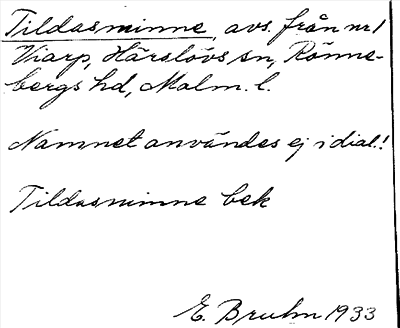 Tildasminne, avs. från nr 1
Viarp, Härslövs sn, Rönne-
bergs hd, Malm. l.
Namnet användes ej i dial.!
Tildasminne bek
E. Bruhn 1933